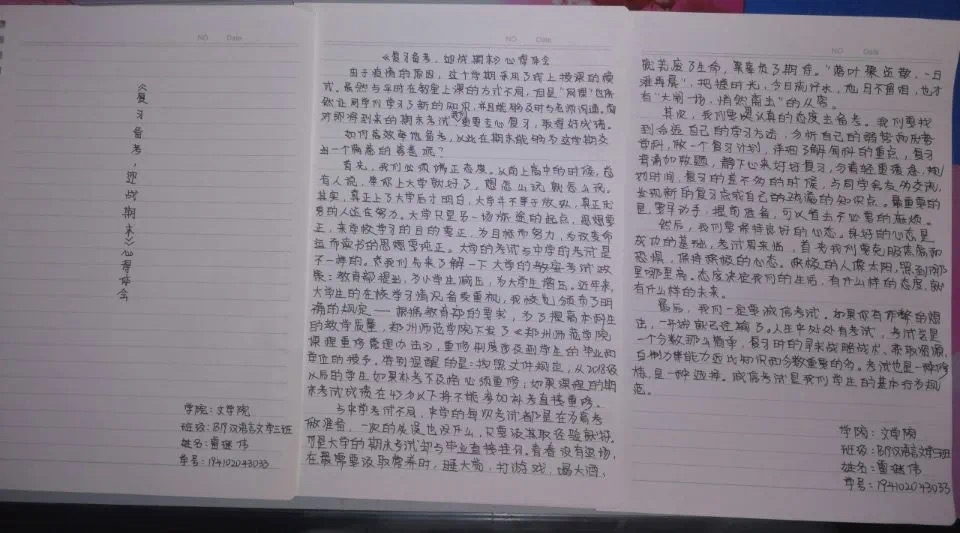 NO. Date
《复习备考,迎战期末》心得体会
学院:文学院
班级:B19汉语言文学三班
姓名:曹继伟
学号:194102043033
NO. Date
《复习备考,迎战期末》心得体会
由于疫情的原因,这个学期采用了线上授课的模
式。虽然与平时在教室上课的方式不同,但是“网课”也依
然让同学们学习了新的知识,并且能够及时与老师沟通。面
对即将到来的期末考试,更要专心复习,取得好成绩。
如何高效率地备考,以此在期末能够为这学期交
出一个满意的答卷呢?
首先,我们必须端正态度。从前上高中的时候,总
有人说,等你上大学就好了,想怎么玩就怎么玩。
其实,真正上了大学后才明白,大学并不等于放纵,真正优
秀的人还在努力。大学只是另一场旅途的起点,思想要
正,来学校学习的目的要正,为目标而努力,为改变命
运而读书的思想要纯正。大学的考试与中学的考试是
不一样的。
策:教育部提出,为小学生减压,为大学生增压。近年来,
大学生的在校学习情况备受重视,我校也颁布了明
确的规定——根据教育部的要求,为了提高本科生
的教学质量,郑州师范学院下发了《郑州师范学院
课程重修管理办法》,重修制度涉及到学生的毕业和
学位的授予。特别提醒的是:按照文件规定,从2018级
以后的学生如果补考不及格必须重修;如果课程的期
末考试成绩在45分以下将不能参加补考直接重修。
与中学考试不同,中学的每次考试都是在为高考
做准备,一次的失误也没什么,只要汲取经验就好。
可是大学的期末考试却与毕业直接挂钩。青春没有返场,
在最需要汲取营养时,逛大街,打游戏,喝大酒,
NO. Date
就荒废了生命,辜负了期待。“落叶聚还散,一日
难再晨”,把握时光,今日流汗水,他日不留泪,也才
有“大闹一场,悄然离去”的从容。
其次,我们要以认真的态度去备考。我们要找
到合适自己的学习方法,分析自己的弱势和优势
学科,做一个复习计划,详细了解每科的重点,复习
背诵如做题,静下心来好好复习,分清轻重缓急,规
划时间,复习的差不多的时候,与同学舍友多交流,
发现新的复习点或自己的遗漏的知识点。最重要的
是,要早动手,提前准备,可以省去不必要的麻烦。
然后,我们要保持良好的心态。良好的心态是
成功的基础,考试周来临,首先我们要克服焦虑和
恐惧,保持积极的心态。积极的人像太阳,照到哪
里哪里亮。态度决定我们的生活,有什么样的态度,就
有什么样的未来。
最后,我们一定要诚信考试。如果你有作弊的想
法,一开始就已经输了。人生中处处有考试,考试不是
一个分数那么简单,复习时的寻求战略战术、索取资源、
自制力等能力远比知识和分数重要的多。考试也是一种修
炼,是一种选择。诚信考试是我们学生的基本行为规
范。
学院:文学院
班级:B19汉语言文学三班
姓名:曹继伟
学号:194102043033